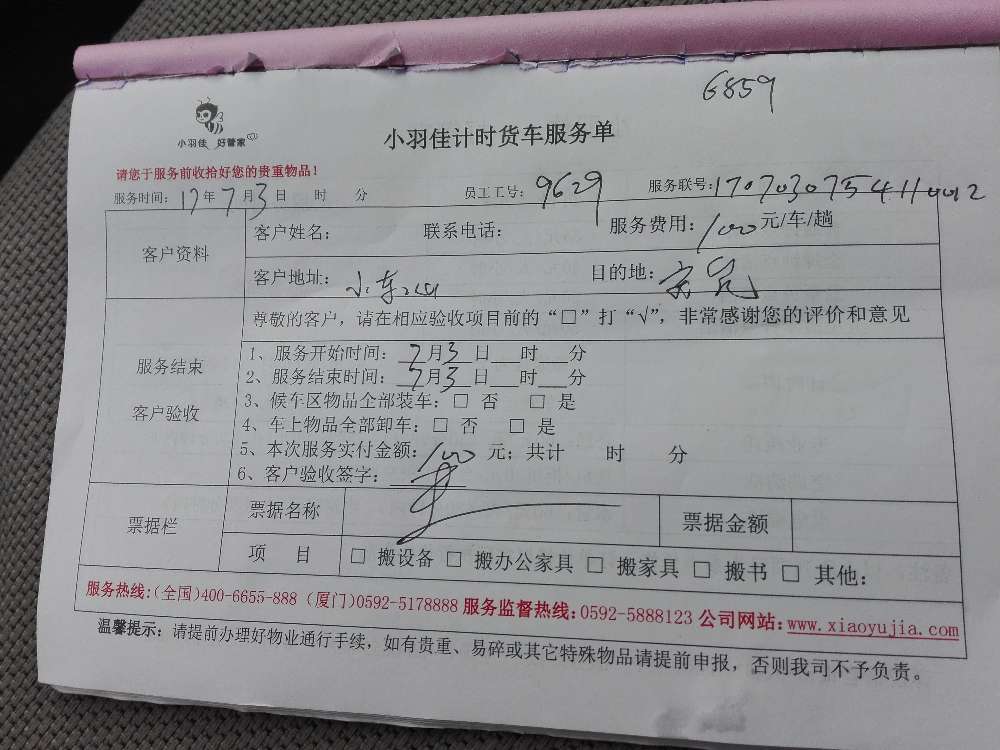 6859
小羽佳 好管家
小羽佳计时货车服务单
请您于服务前收拾好您的贵重物品！
服务时间：17年7月3日 时 分 员工工号：9629 服务联号：170703075411002
客户资料 客户姓名： 联系电话： 服务费用：100元/车/趟
客户地址：小东山 目的地：
尊敬的客户，请在相应验收项目前的“□”打“√”，非常感谢您的评价和意见
服务结束
客户验收
1、服务开始时间：7月3日___时___分
2、服务结束时间：7月3日___时___分
3、候车区物品全部装车：□ 否 □ 是
4、车上物品全部卸车：□ 否 □ 是
5、本次服务实付金额：100元；共计 时 分
6、客户验收签字：
票据栏 票据名称 票据金额
项 目 □ 搬设备 □ 搬办公家具 □ 搬家具 □ 搬书 □ 其他：
服务热线：（全国）400-6655-888（厦门）0592-5178888 服务监督热线：0592-5888123 公司网站：www.xiaoyujia.com
温馨提示：请提前办理好物业通行手续，如有贵重、易碎或其它特殊物品请提前申报，否则我司不予负责。